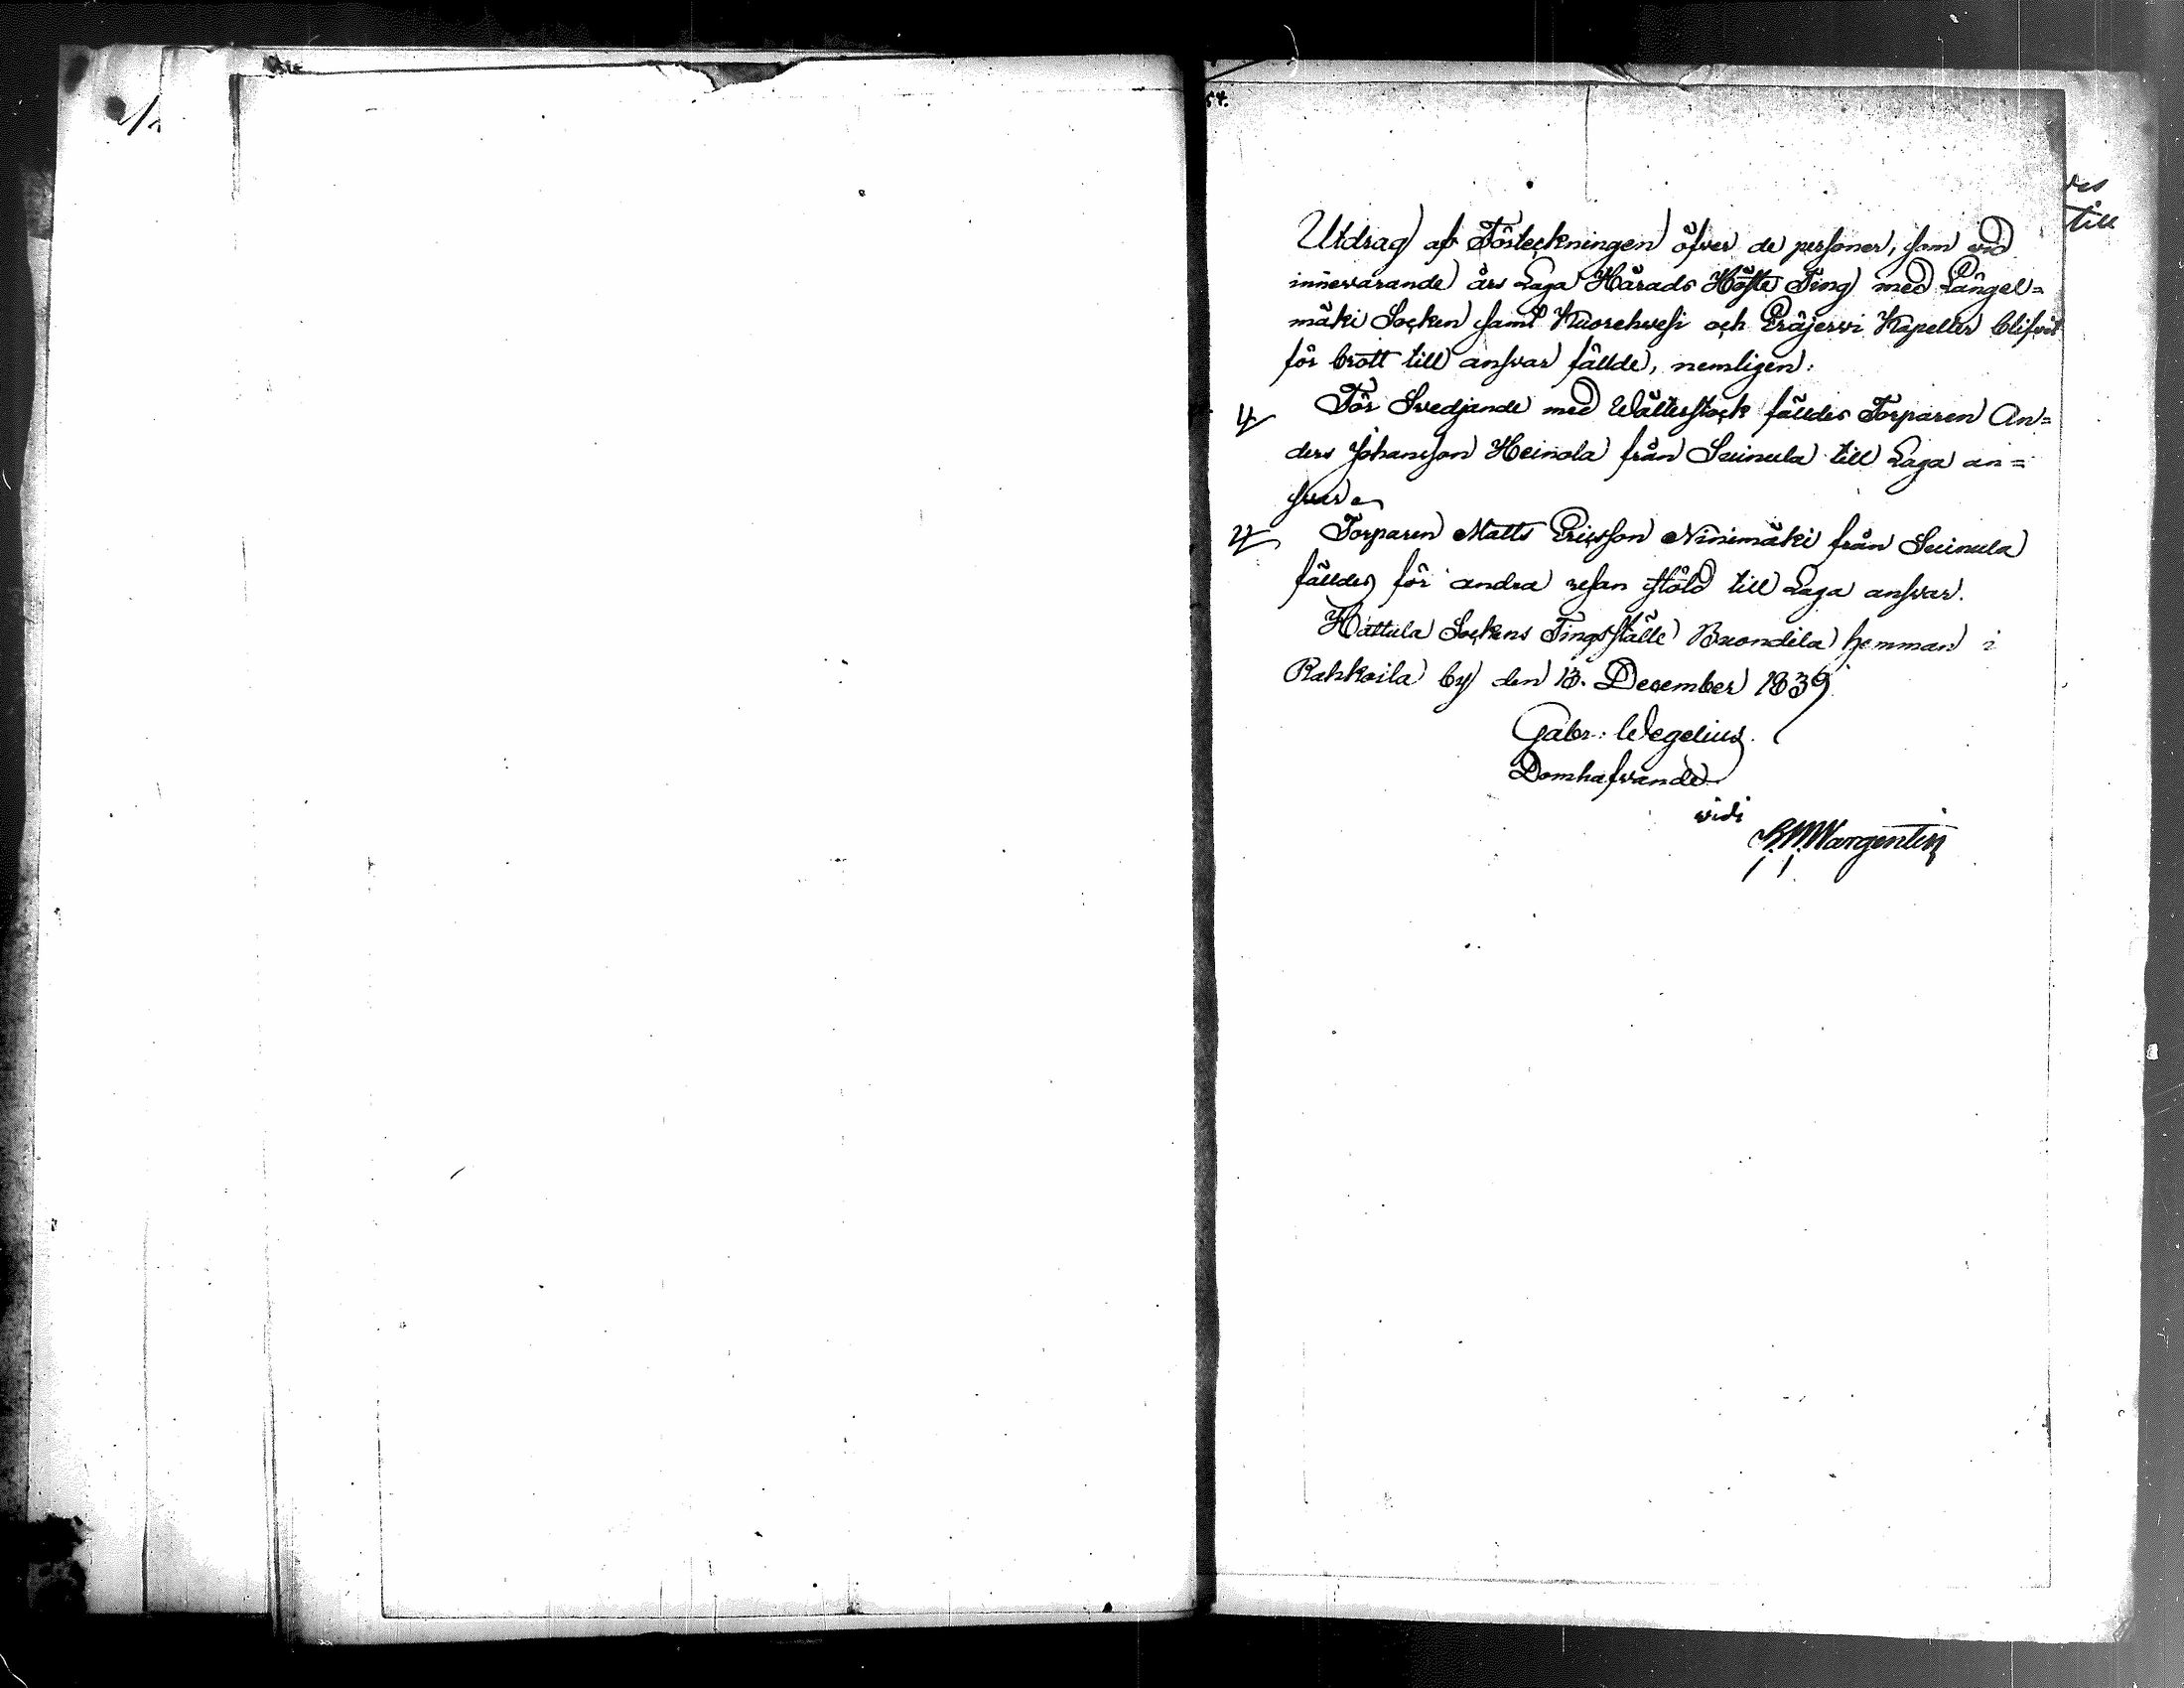 54.
Utdrag af Förteckningen öfver de personer, som vid
innevarande års Laga Härads Höste Ting med Längel=
mäki Socken samt Kuorehwesi och Eräjerwi Kapeller blifvit
för brott till ansvar fällde, nemligen:
1/ För Svedjande med Wälterstock fälldes Torparen An=
ders Johansson Heinola från Suinula till Laga an=
svar.
2/ Torparen Matts Ericsson Ninimäki från Suinula
fälldes för andra resan stöld till Laga ansvar.
Hattula Sockens Tingsställe hemman i
Rahkoila by den 13. December 1839
Gabr: Wegelius.
Domhafvande
vidi
Wargentin
till